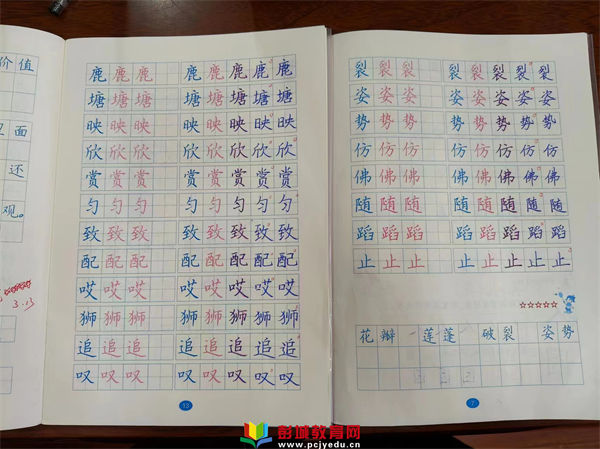 价值
里面
还
观。
3.13
鹿鹿鹿 鹿鹿鹿鹿鹿
塘塘塘 塘塘塘塘塘
映映映 映映映映映
欣欣欣 欣欣欣欣欣
赏赏赏 赏赏赏赏赏
匀匀匀 匀匀匀匀匀
致致致 致致致致致
配配配 配配配配配
哎哎哎 哎哎哎哎哎
狮狮狮 狮狮狮狮狮
追追追 追追追追追
叹叹叹 叹叹叹叹叹
13
裂裂裂 裂裂裂裂裂
姿姿姿 姿姿姿姿姿
势势势 势势势势势
仿仿仿 仿仿仿仿仿
佛佛佛 佛佛佛佛佛
随随随 随随随随随
蹈蹈蹈 蹈蹈蹈蹈蹈
止止止 止止止止止
花瓣 莲蓬 破裂 姿势
7
彭城教育网
www.pcjyedu.cn